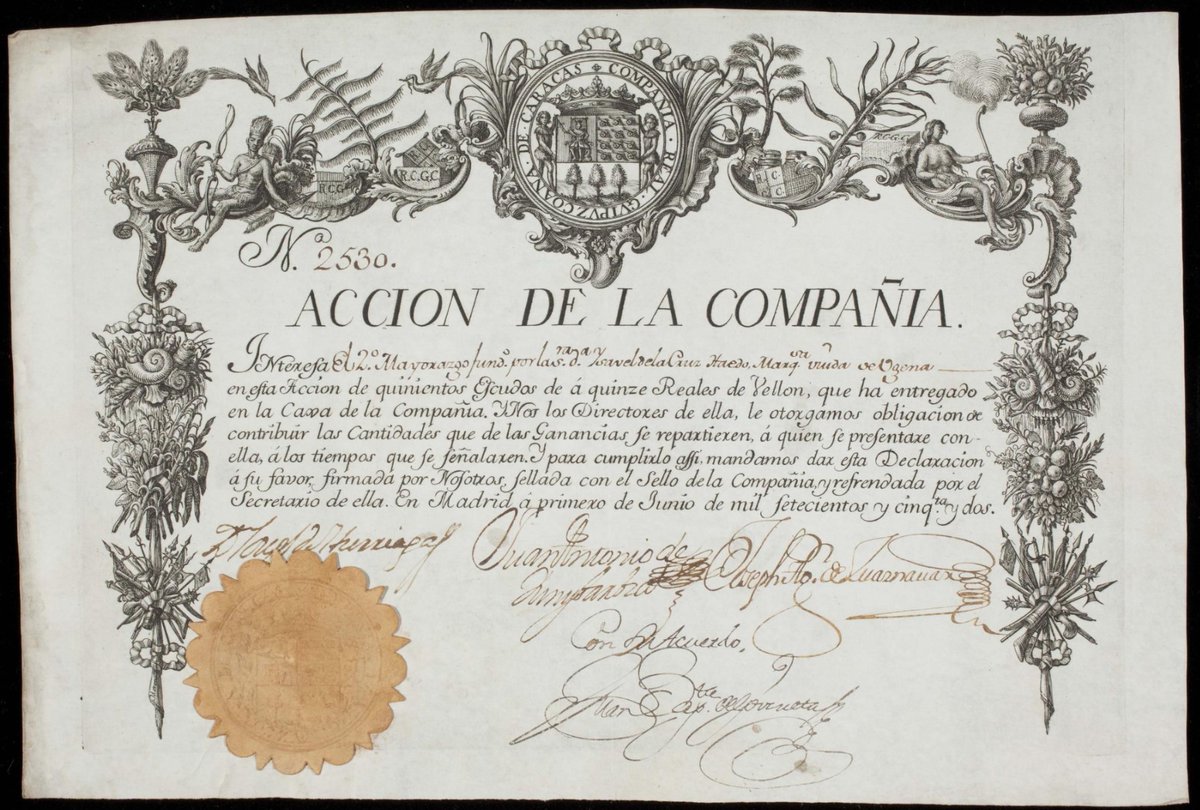 DE · CARACAS ✦ COMPAÑIA · REAL · GUIPUZCOANA
R.C.G.
R.C.G.C
R.C.G.C
C
C.
N.ª 2530.
ACCION DE LA COMPAÑIA.
INteresa El 2.º Mayorazgo fund.º por la S.ra d.ª Ysavel de la Cruz Haedo, Marq.sa viuda de Ugena
en esta Accion de quinientos Escudos de á quinze Reales de Vellon, que ha entregado
en la Caxa de la Compañia. Y Nos los Directores de ella, le otorgamos obligacion de
contribuir las Cantidades que de las Ganancias se repartieren, á quien se presentare con
ella, á los tiempos que se señalaren. Y para cumplirlo assi, mandamos dar esta Declaracion
á su favor, firmada por Nosotros, sellada con el Sello de la Compañia, y refrendada por el
Secretario de ella. En Madrid, á primero de Junio de mil setecientos y cinq.ta y dos.
Juan Antonio de
Joseph de Zuaznavar
Con su Acuerdo,